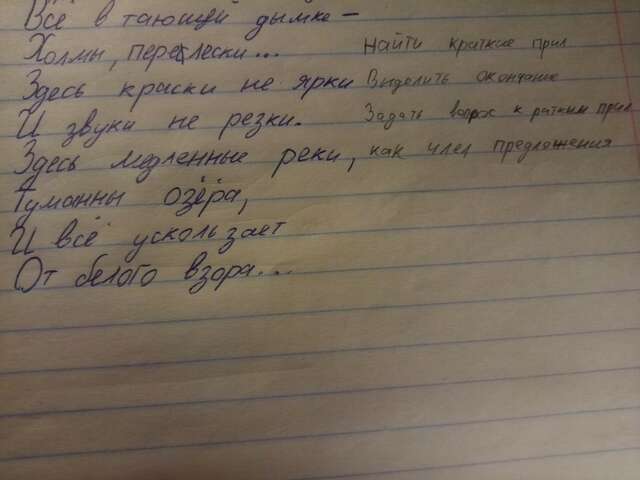 Всё в тающей дымке –
Холмы, перелески...
Здесь краски не ярки
И звуки не резки.
Здесь медленные реки,
Туманны озёра,
И всё ускользает
От белого взора...
Найти краткие прил
Выделить окончание
Задать вопрос к ратким прил
как член предложения